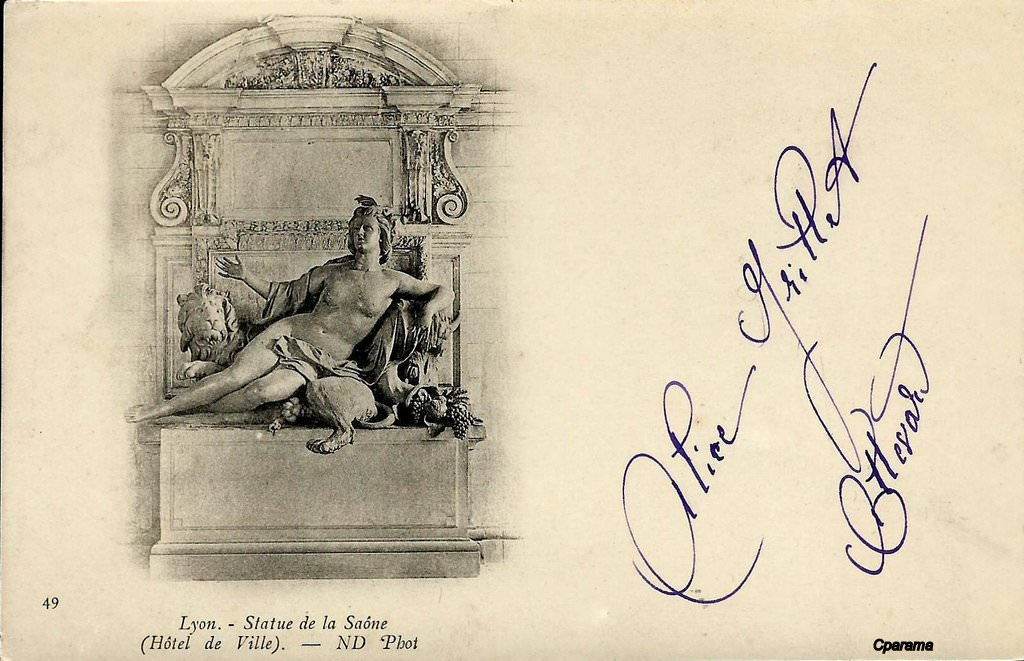 Alice
49
Lyon. - Statue de la Saône
(Hôtel de Ville). — ND Phot
Cparama